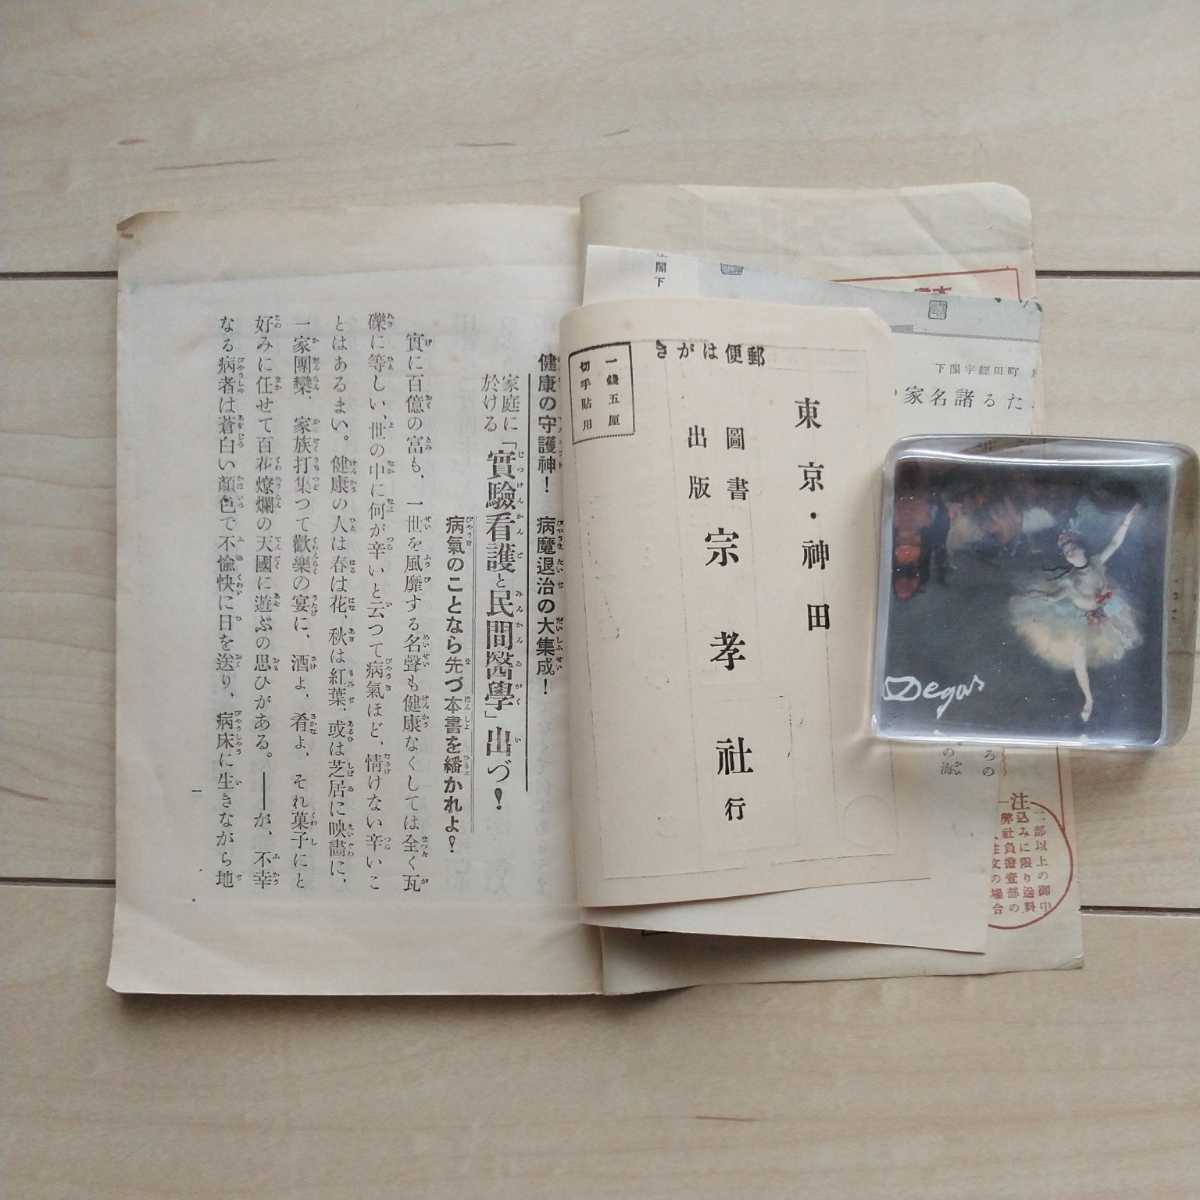 健康の守護神！　病魔退治の大集成！
家庭に於ける「實驗看護と民間醫學」出づ！
病氣のことなら先づ本書を繙かれよ！
實に百億の富も、一世を風靡する名聲も健康なくしては全く瓦
礫に等しい、世の中に何が辛いと云つて病氣ほど、情けない辛いこ
とはあるまい。健康の人は春は花、秋は紅葉、或は芝居に映畫に、
一家團欒、家族打集つて歡樂の宴に、酒よ、肴よ、それ菓子にと
好みに任せて百花燎爛の天國に遊ぶの思ひがある。――が、不幸
なる病者は蒼白い顔色で不愉快に日を送り、病床に生きながら地
一
郵便はがき
一錢五厘
切手貼用
東京・神田
圖書出版
宗孝社行
閣下
下關字經田町
たる諸名家
Degas
注
二部以上の御申
込みに限り送料
弊社負擔
注文の場合